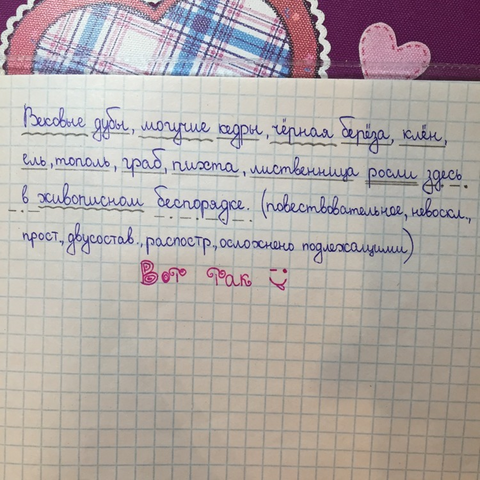 Вековые дубы, могучие кедры, чёрная берёза, клён,
ель, тополь, граб, пихта, лиственница росли здесь
в живописном беспорядке. (повествовательное, невоскл.,
прост., двусостав., распостр., осложнено подлежащими)
Вот так :)